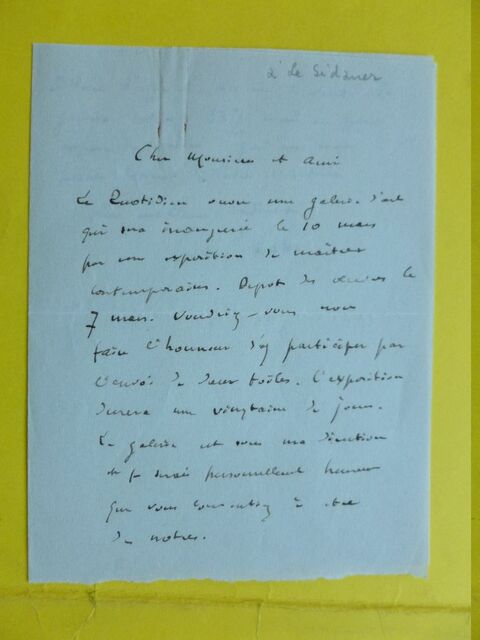 à Le Sidaner
Cher Monsieur et ami
Le Quotidien ouvre une galerie d'art
qui sera inaugurée le 10 mars
par une exposition de maîtres
contemporains. Depot des œuvres le
7 mars. Voudriez-vous nous
faire l'honneur d'y participer par
l'envoi de deux toiles. L'exposition
durera une vingtaine de jours.
La galerie est sous ma direction
et je serai personnellement heureux
que vous consentiez à être
des notres.